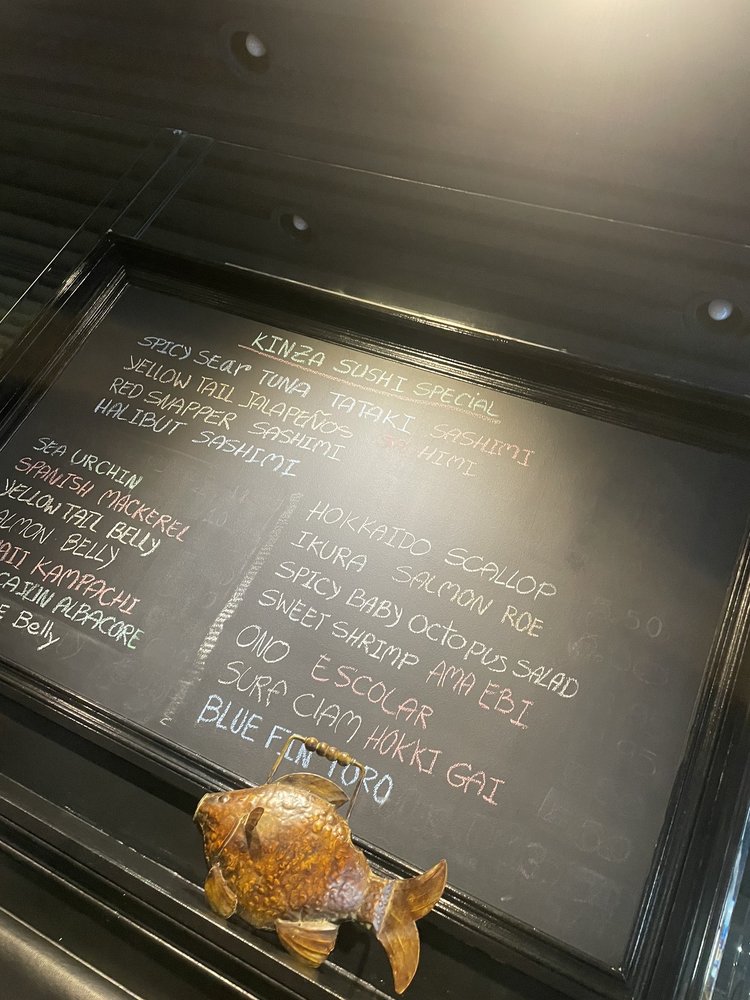 KINZA SUSHI SPECIAL
SPICY Sear TUNA TATAKI SASHIMI
YELLOW TAIL JALAPEÑOS SASHIMI
RED SNAPPER SASHIMI
HALIBUT SASHIMI
SEA URCHIN
SPANISH MACKEREL
YELLOW TAIL BELLY
ALMON BELLY
KAMPACHI
CAJUN ALBACORE
Belly
HOKKAIDO SCALLOP
IKURA SALMON ROE
SPICY BABY OCTOPUS SALAD
SWEET SHRIMP AMA EBI
ONO ESCOLAR
SURF CLAM HOKKI GAI
BLUE FIN TORO